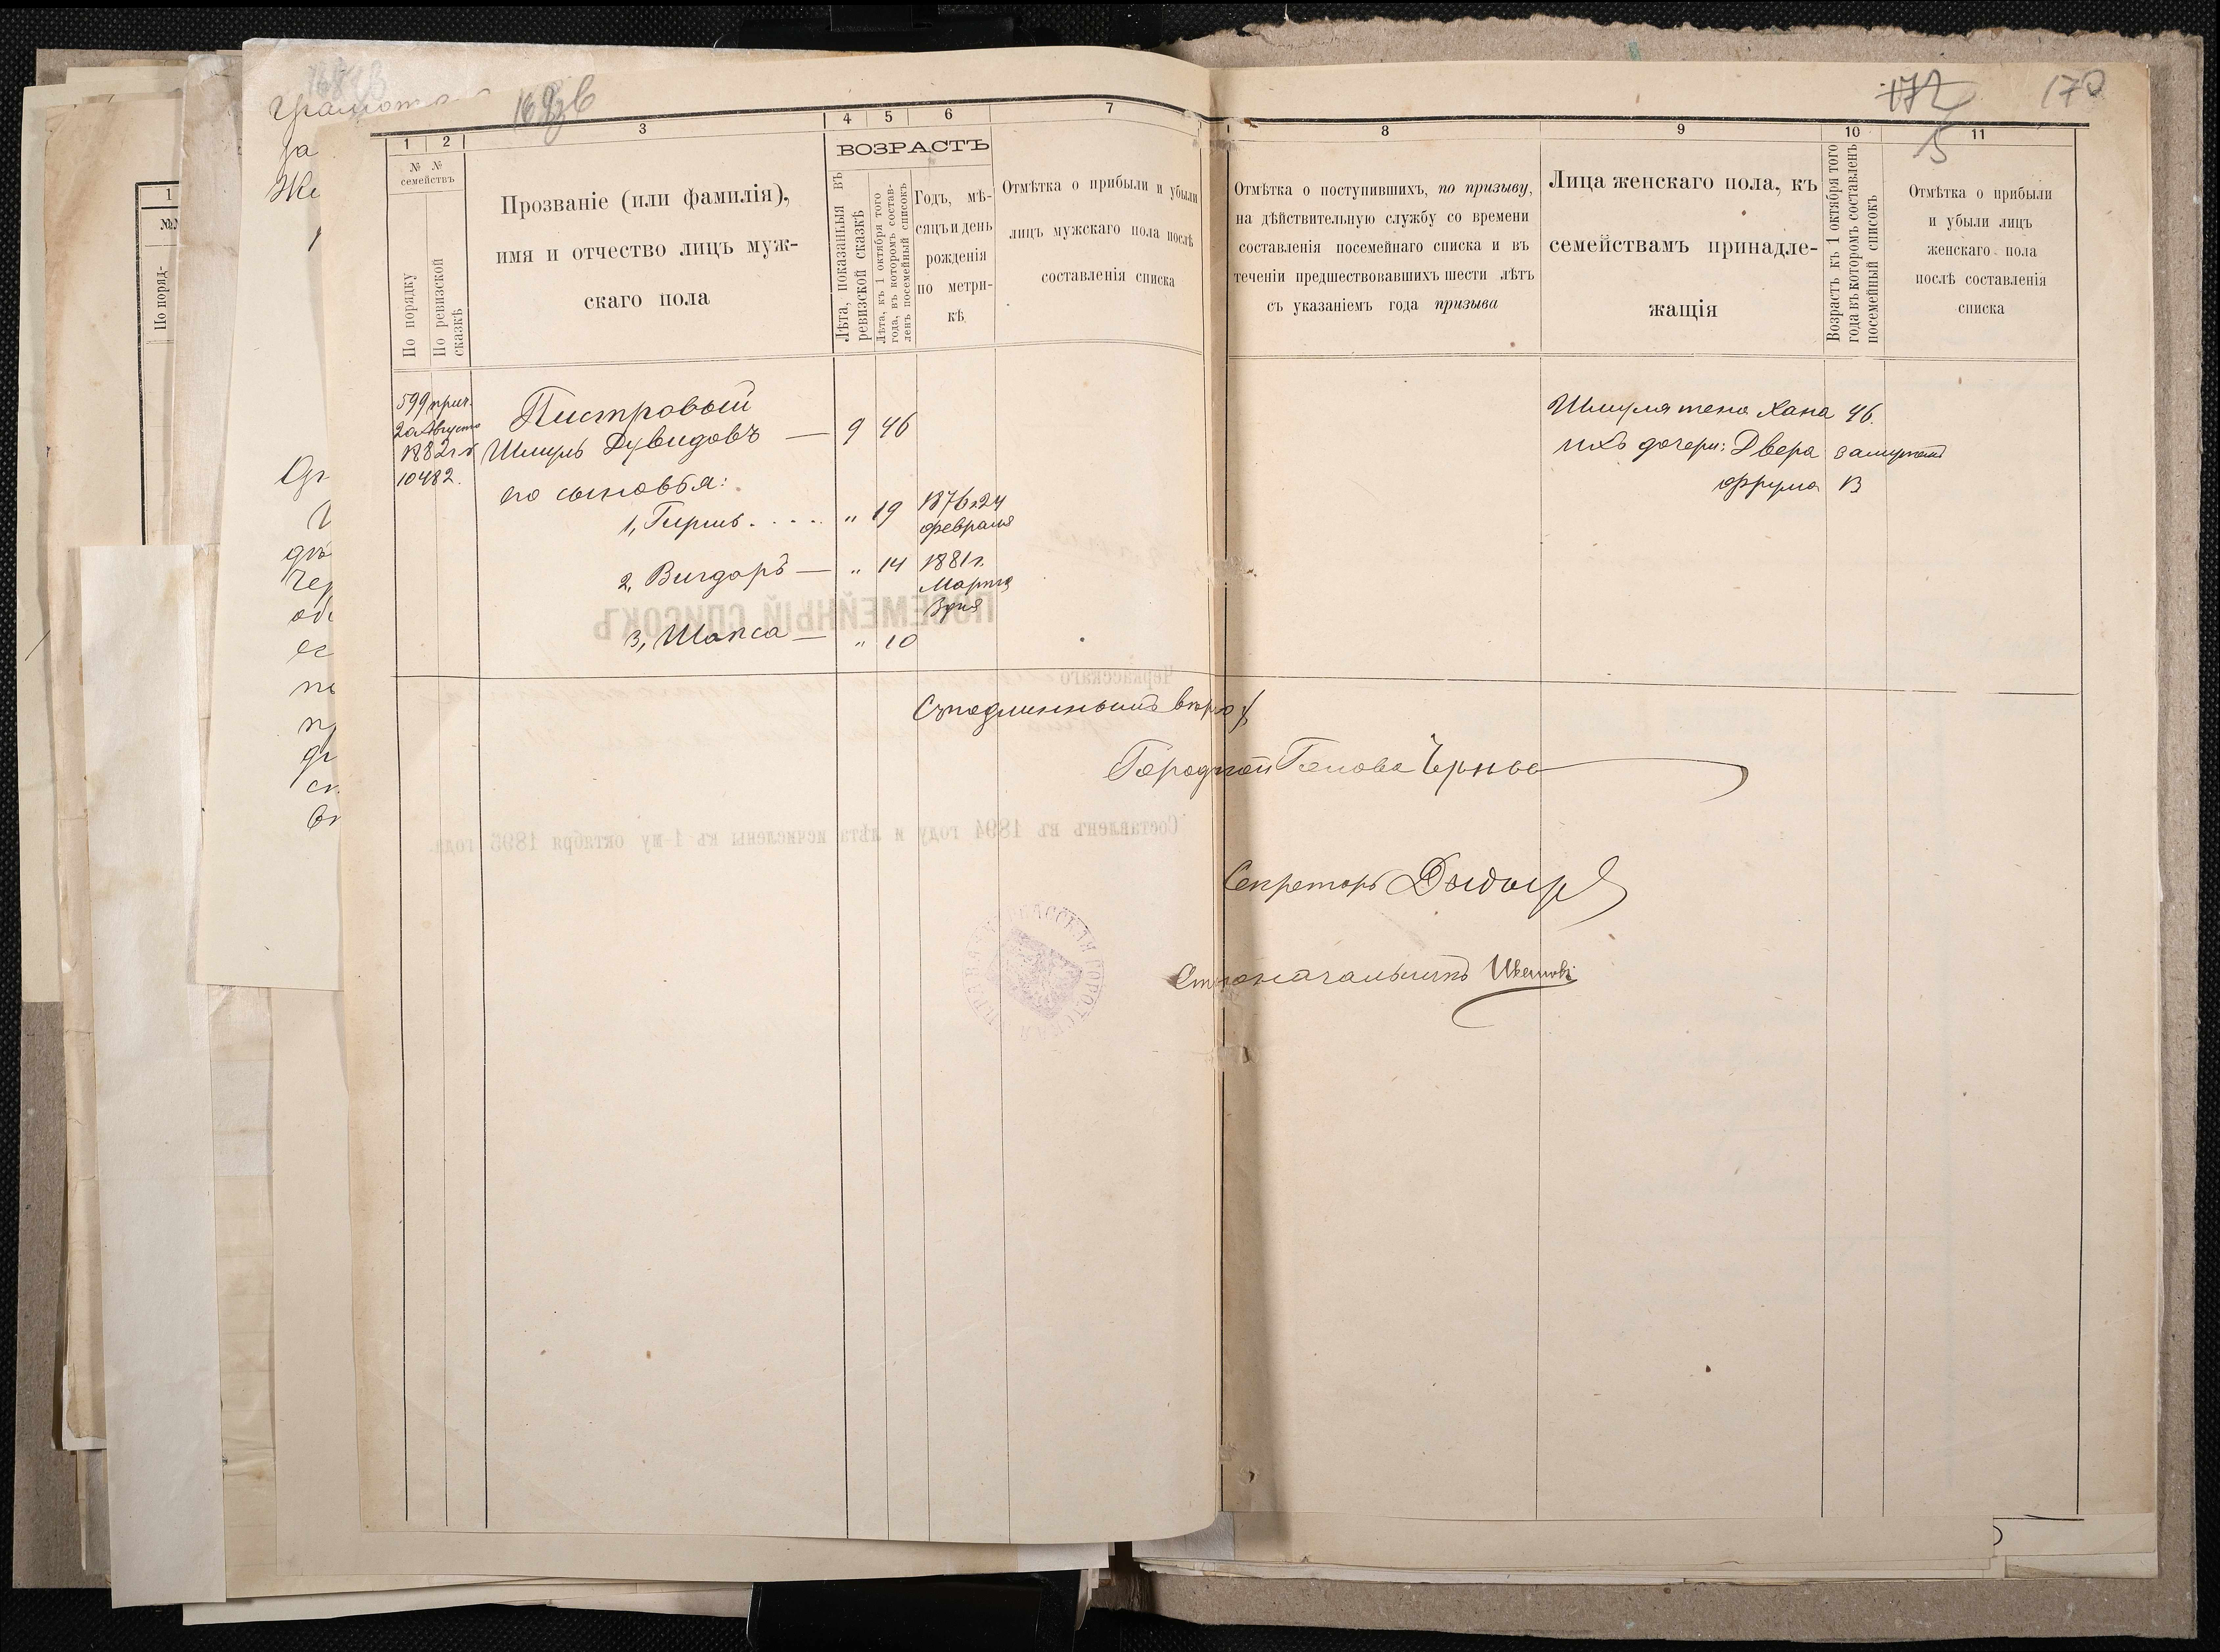 172
170
5
грамот
за
1
2
3
4
5
6
7
8
9
10
11
№ №
семействъ
По порядку
По ревизской
сказкѣ
Прозваніе (или фамилія),
имя и отчество лицъ муж-
скаго пола
ВОЗРАСТЪ
Лѣта, показанныя въ
ревизской сказкѣ
Лѣта, къ 1 октября того
года, въ которомъ состав-
ленъ посемейный списокъ
Годъ, мѣ-
сяцъ и день
рожденія
по метри-
кѣ
Отмѣтка о прибыли и убыли
лицъ мужскаго пола послѣ
составленія списка
Отмѣтка о поступившихъ, по призыву,
на дѣйствительную службу со времени
составленія посемейнаго списка и въ
теченіи предшествовавшихъ шести лѣтъ
съ указаніемъ года призыва
Лица женскаго пола, къ
семействамъ принадле-
жащія
Возрастъ къ 1 октября того
года въ которомъ составленъ
посемейный списокъ
Отмѣтка о прибыли
и убыли лицъ
женскаго пола
послѣ составленія
списка
599 прич.
20 Августа
1882 г. №
10482.
Пистровый
Шмуль Дувидовъ — 9 46
го сыновья:
1, Гершь . . . . " 19 1876 г. 24
февраля
2, Вигдоръ — " 14 1881 г.
Марта
3 дня
3, Шапса — " 10
Шмуля жена Хана 46.
ихъ дочери: Двера замужемъ
Фрума 13
Съ подлиннымъ вѣрно:
Городской Голова
Секретарь
Столоначальникъ
ПОСЕМЕЙНЫЙ СПИСОКЪ
Черкасскаго
Составленъ въ 1894 году и лѣта исчислены къ 1-му октября 1895 года.
1
По поряд-